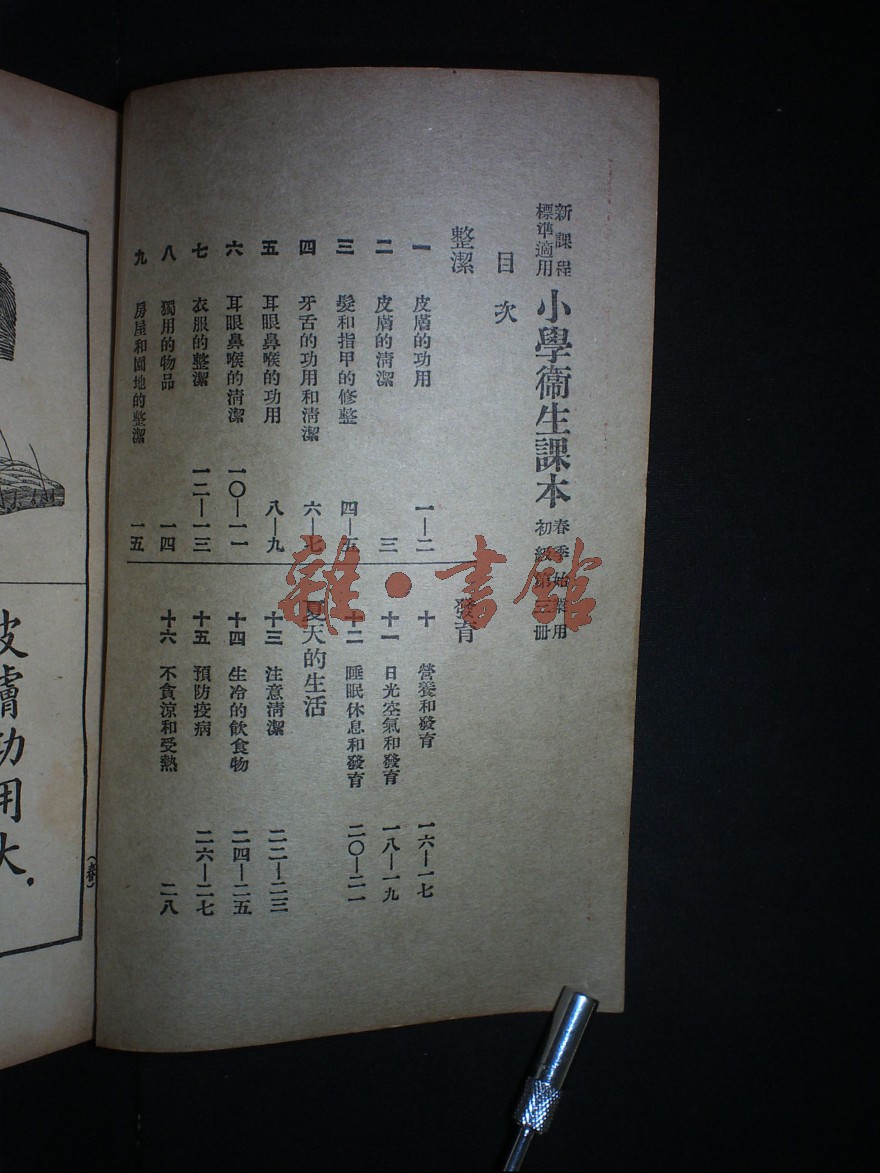 新課程
標準適用
小學衞生課本
春季始業用
初級第三冊
目次
整潔
一 皮膚的功用 一—二
二 皮膚的清潔 三
三 髮和指甲的修整 四—五
四 牙舌的功用和清潔 六—七
五 耳眼鼻喉的功用 八—九
六 耳眼鼻喉的清潔 一〇—一一
七 衣服的整潔 一二—一三
八 獨用的物品 一四
九 房屋和園地的整潔 一五
發育
十 營養和發育 一六—一七
十一 日光空氣和發育 一八—一九
十二 睡眠休息和發育 二〇—二一
夏天的生活
十三 注意清潔 二二—二三
十四 生冷的飲食物 二四—二五
十五 預防疫病 二六—二七
十六 不貪涼和受熱 二八
皮膚功用大．
（春）
雜·書館